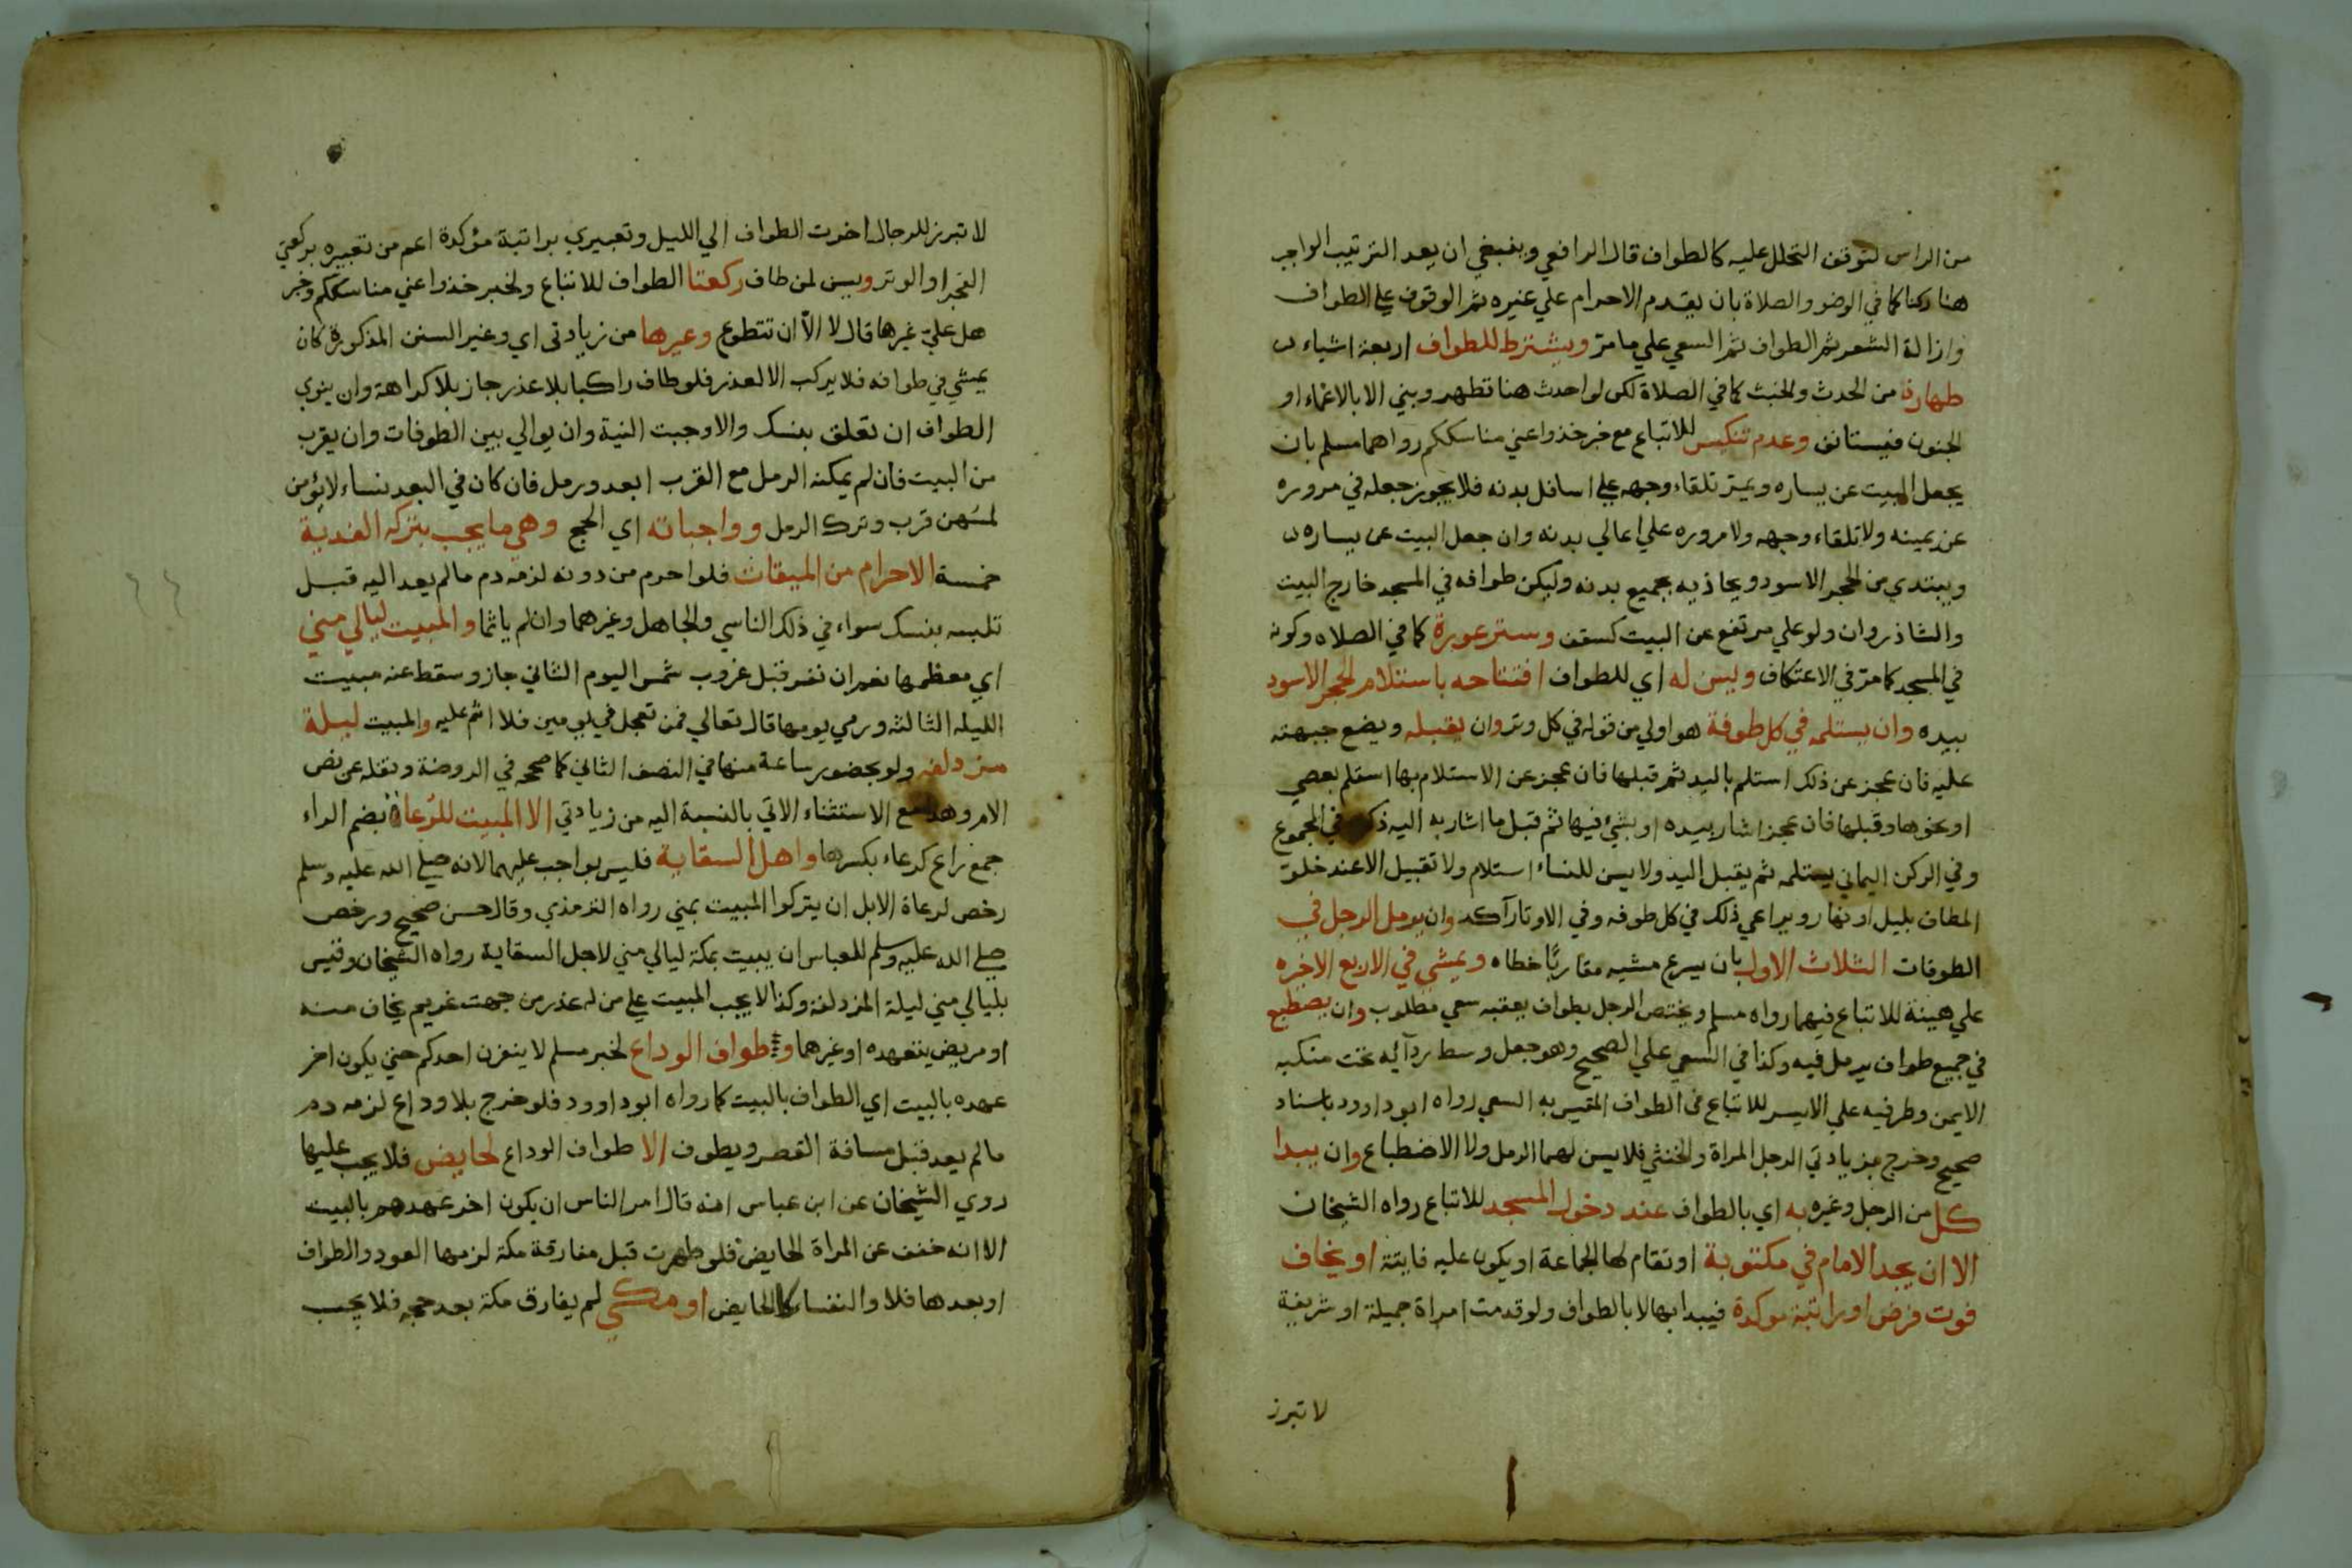 من الراس لتوقف التحلل عليه كالطواف قال الرافعي وينبغي ان يعد الترتيب الواجب
هنا ركنا كما في الوضو والصلاة بان يقدم الاحرام علي غيره ثم الوقوف علي الطواف
وازالة الشعر ثم الطواف ثم السعي علي ما مر ويشترط للطواف اربعة اشياء
طهارة من الحدث والخبث كما في الصلاة لكن لو احدث هنا تطهر وبني الا بالاغماء او
الجنون فيستانف وعدم تنكيس للاتباع مع خبر خذوا عني مناسككم رواهما مسلم بان
يجعل البيت عن يساره ويمر تلقاء وجهه علي اسافل بدنه فلا يجوز جعله في مروره
عن يمينه ولا تلقاء وجهه ولا مروره علي اعالي بدنه وان جعل البيت عن يساره
ويبتدي من الحجر الاسود ويحاذيه بجميع بدنه وليكن طوافه في المسجد خارج البيت
والشاذروان ولو علي مرتفع عن البيت كسقف وستر عورة كما في الصلاه وكونه
في المسجد كما مر في الاعتكاف ويسن له اي للطواف افتتاحه باستلام الحجر الاسود
بيده وان يستلمه في كل طوفة هو اولي من قوله في كل وتر وان يقبله ويضع جبهته
عليه فان عجز عن ذلك استلم باليد ثم قبلها فان عجز عن الاستلام بها استلم بعصي
او نحوها وقبلها فان عجز اشار بيده او بشئ فيها ثم قبل ما اشار به اليه ذكره في المجموع
وفي الركن اليماني يستلمه ثم يقبل اليد ولا يسن للنساء استلام ولا تقبيل الا عند خلو
المطاف بليل او نهار ويراعي ذلك في كل طوفه وفي الاوتار آكد وان يرمل الرجل في
الطوفات الثلاث الاول بان يسرع مشيه مقاربًا خطاه ويمشي في الاربع الاخيره
علي هينة للاتباع فيهما رواه مسلم ويختص الرجل بطواف يعقبه سعي مطلوب وان يضطبع
في جميع طواف يرمل فيه وكذا في السعي علي الصحيح وهو جعل وسط ردآئه تحت منكبه
الايمن وطرفيه علي الايسر للاتباع في الطواف المقيس به السعي رواه ابو داوود باسناد
صحيح وخرج بزيادتي الرجل المراة والخنثي فلا يسن لهما الرمل ولا الاضطباع وان يبدا
كل من الرجل وغيره به اي بالطواف عند دخول المسجد للاتباع رواه الشيخان
الا ان يجد الامام في مكتوبة او تقام لها الجماعة او يكون عليه فايتة او يخاف
فوت فرض او راتبة موكدة فيبدا بها لا بالطواف ولو قدمت امراة جميلة او شريفة
لا تبرز
لا تبرز للرجال اخرت الطواف الي الليل وتعبيري براتبة مؤكدة اعم من تعبيره بركعتي
الفجر او الوتر ويسن لمن طاف ركعتا الطواف للاتباع ولخبر خذوا عني مناسككم وخبر
هل عليّ غيرها قال لا الاّ ان تتطوع وغيرها من زيادتى اي وغير السنن المذكورة كان
يمشي في طوافه فلا يركب الا لعذر فلو طاف راكبا بلا عذر جاز بلا كراهة وان ينوي
الطواف ان تعلق بنسك والا وجبت النية وان يوالي بين الطوفات وان يقرب
من البيت فان لم يمكنه الرمل مع القرب ابعد ورمل فان كان في البعد نساء لا يؤمن
لمسهن قرب وترك الرمل وواجباته اي الحج وهي ما يجب بتركه الفدية
خمسة الاحرام من الميقات فلو احرم من دونه لزمه دم ما لم يعد اليه قبل
تلبسه بنسك سواء في ذلك الناسي والجاهل وغيرهما وان لم ياثما والمبيت ليالي مني
اي معظمها نعم ان نفر قبل غروب شمس اليوم الثاني جاز وسقط عنه مبيت
الليله الثالثه ورمي يومها قال تعالي فمن تعجل في يومين فلا اثم عليه والمبيت ليلة
مزدلفه ولو بحضور ساعة منها في النصف الثاني كما صححه في الروضة ونقله عن نص
الام وهذا مع الاستثناء الاتي بالنسبة اليه من زيادتي الا المبيت للرُعاة بضم الراء
جمع راع كرعاء بكسرها واهل السقاية فليس بواجب عليهما لانه صلي الله عليه وسلم
رخص لرعاة الابل ان يتركوا المبيت بمني رواه الترمذي وقال حسن صحيح ورخص
صلي الله عليه وسلم للعباس ان يبيت بمكة ليالي مني لاجل السقاية رواه الشيخان وقيس
بليالي مني ليلة المزدلفة وكذا لا يجب المبيت علي من له عذر من جهة غريم يخاف منه
او مريض يتعهده او غيرهما وطواف الوداع لخبر مسلم لا ينفرن احدكم حتي يكون اخر
عهده بالبيت اي الطواف بالبيت كما رواه ابو داوود فلو خرج بلا وداع لزمه دم
ما لم يعد قبل مسافة القصر ويطوف الا طواف الوداع لحايض فلا يجب عليها
روي الشيخان عن ابن عباس انه قال امر الناس ان يكون اخر عهدهم بالبيت
الا انه خفف عن المراة الحايض فلو طهرت قبل مفارقة مكة لزمها العود والطواف
او بعدها فلا والنفساء كالحايض او مكي لم يفارق مكة بعد حجه فلا يجب